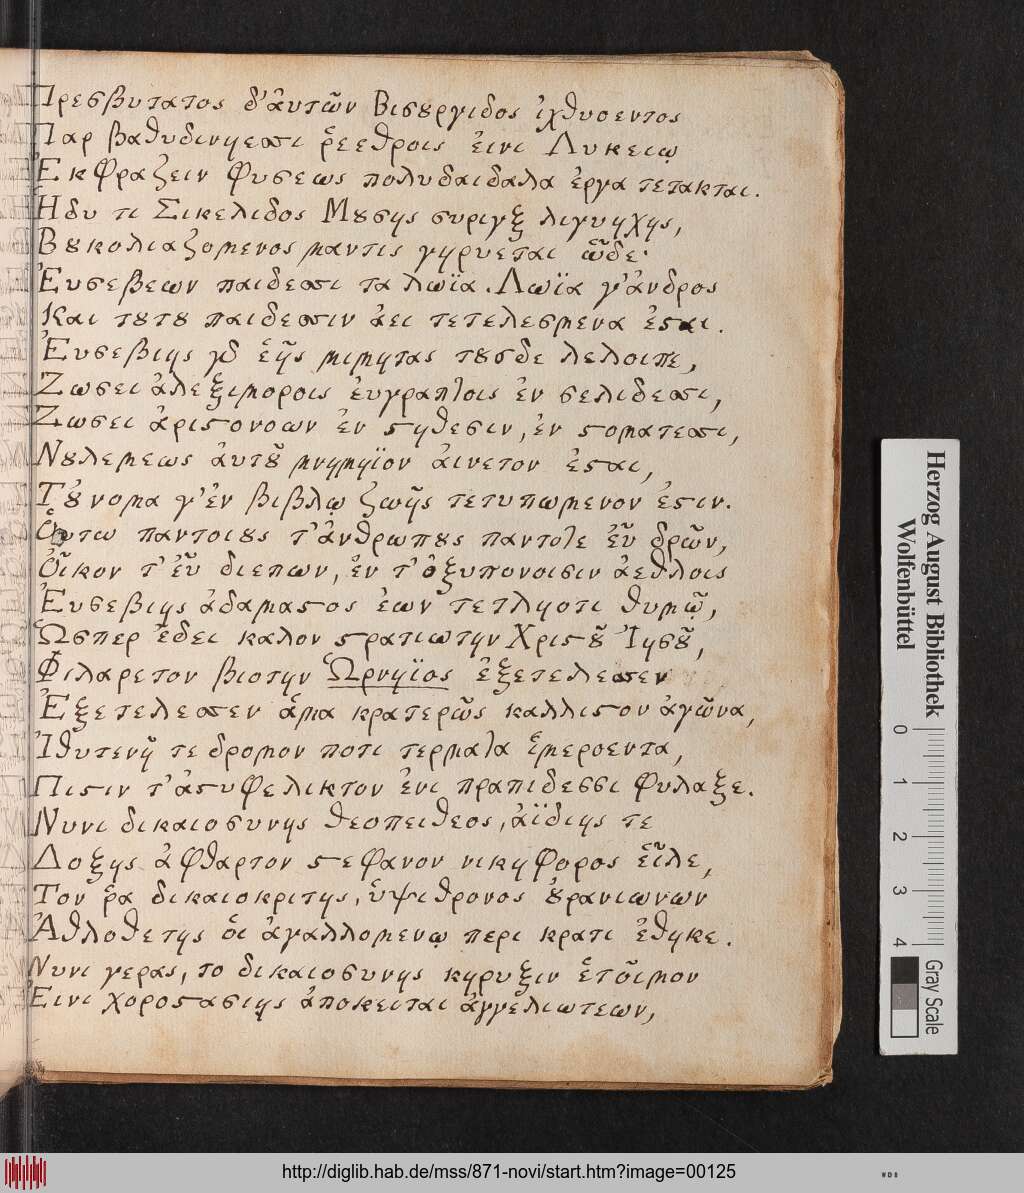 Πρεσβυτατος δ' ἀυτῶν Βισȣργιδος ἰχθυοεντος
Παρ βαθυδινηεσσι ῥεεθροις ἐινι Λυκειῳ
Ἐκφραζειν φυσεως πολυδαιδαλα ἐργα τετακται.
Ἡδυ τι Σικελιδος Μȣσης συριγξ λιγυηχης,
Βȣκολιαζομενος μαντις γηρυεται ὧδε·
Ἐυσεβεων παιδεσσι τα λωϊα. Λωϊα γ' ἀνδρος
Και τȣτȣ παιδεσσιν ἀει τετελεσμενα ἐϛαι.
Ἐυσεβιης γδ ἑῆς μιμητας τȣσδε λελοιπε,
Ζωσει ἀλεξιμοροις ἐυγραπτοις ἐν σελιδεσσι,
Ζωσει ἀριϛονοων ἐν ϛηθεσιν, ἐν ϛοματεσσι,
Νȣλεμεως ἀυτȣ͂ μνημηϊον ἀινετον ἐϛαι,
Τȣ́νομα γ' ἐν βιβλῳ ζωῆς τετυπωμενον ἐϛιν.
Ὁυτω παντοιȣς τ' ἀνθρωπȣς παντοτε ἐῦ δρῶν,
Ὀῖκον τ' ἐῦ διεπων, ἐν τ' ὀξυπονοισιν ἀεθλοις
Ἐυσεβιης ἀδαμαϛος ἐων τετληοτι θυμῷ,
Ὡσπερ ἐδει καλον ϛρατιωτην Χριϛȣ͂ Ἰησȣ͂,
Φιλαρετον βιοτην Ὡρνηϊος ἐξετελεσσεν
Ἐξετελεσσεν ἁμα κρατερῶς καλλιϛον ἀγῶνα,
Ἰθυτενῆ τε δρομον ποτι τερματα ἱμεροεντα,
Πιϛιν τ' ἀϛυφελικτον ἐνι πραπιδεσσι φυλαξε.
Νυνι δικαιοσυνης θεοπειθεος, ἀϊδιης τε
Δοξης ἀφθαρτον ϛεφανον νικηφορος εἷλε,
Τον ῥα δικαιοκριτης, ὑψιθρονος ȣ̓ρανιωνων
Ἀθλοθετης ὁι ἀγαλλομενῳ περι κρατι ἐθηκε.
Νυνι γερας, το δικαιοσυνης κηρυξιν ἑτοῖμον
Ἐινι χοροϛασιης ἀποκειται ἀγγελιωτεων,
Herzog August Bibliothek
Wolfenbüttel
0 1 2 3 4 Gray Scale
http://diglib.hab.de/mss/871-novi/start.htm?image=00125
WDB